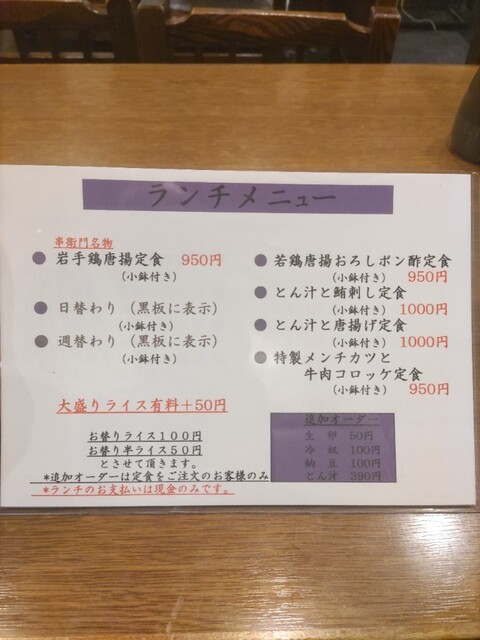 ランチメニュー
串衛門名物
岩手鶏唐揚定食 950円
(小鉢付き)
日替わり (黒板に表示)
(小鉢付き)
週替わり (黒板に表示)
(小鉢付き)
若鶏唐揚おろしポン酢定食
(小鉢付き) 950円
とん汁と鮪刺し定食
(小鉢付き) 1000円
とん汁と唐揚げ定食
(小鉢付き) 1000円
特製メンチカツと
牛肉コロッケ定食
(小鉢付き) 950円
大盛りライス有料+50円
お替りライス100円
お替り半ライス50円
とさせて頂きます。
*追加オーダーは定食をご注文のお客様のみ
*ランチのお支払いは現金のみです。
追加オーダー
生 卵 50円
冷 奴 100円
納 豆 100円
とん汁 390円